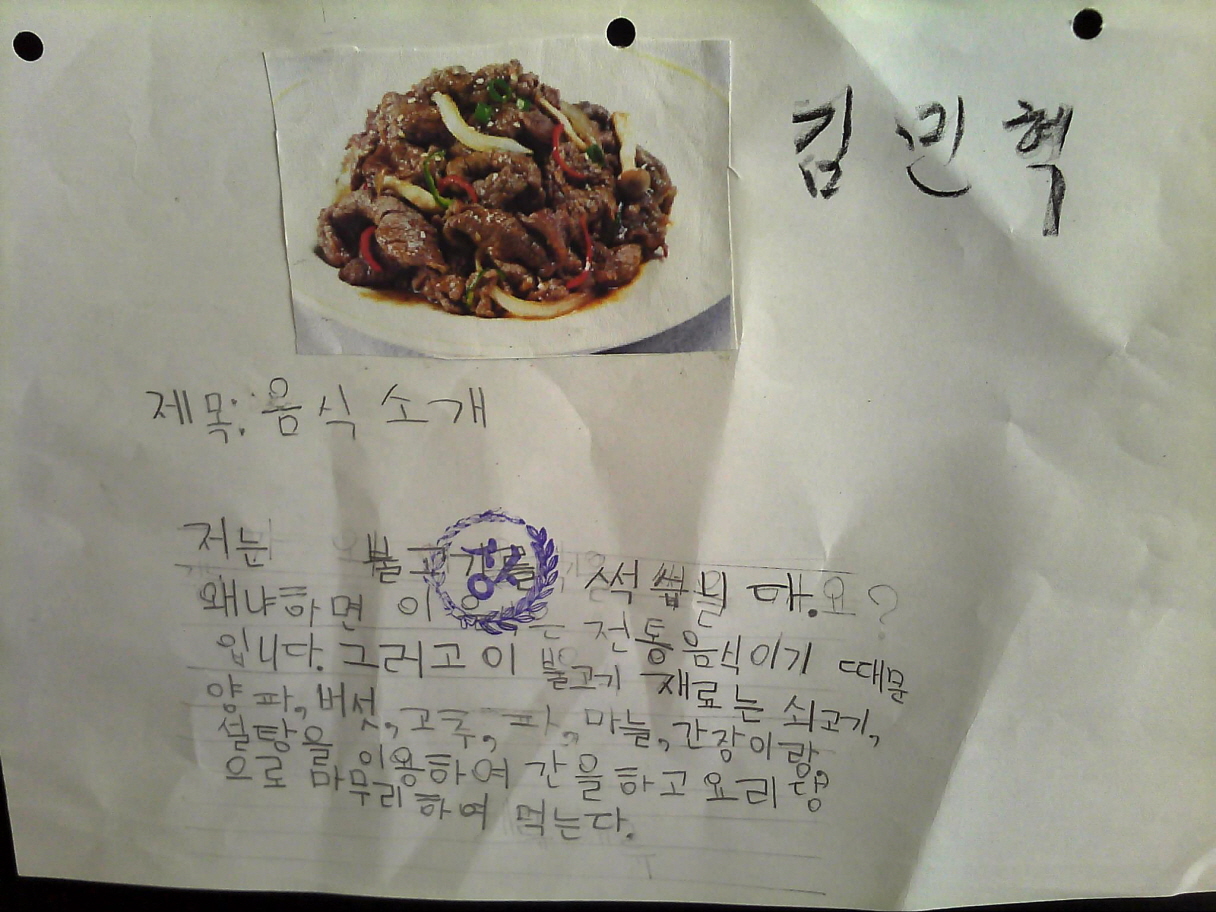 김민혁
제목: 음식 소개
저는 불고기를
왜냐하면 이 는 전통음식이기 때문
입니다. 그리고 이 불고기 재료는 쇠고기,
양파, 버섯, 고추, 파, 마늘, 간장이랑
설탕을 이용하여 간을 하고 요리
으로 마무리하여 먹는다.